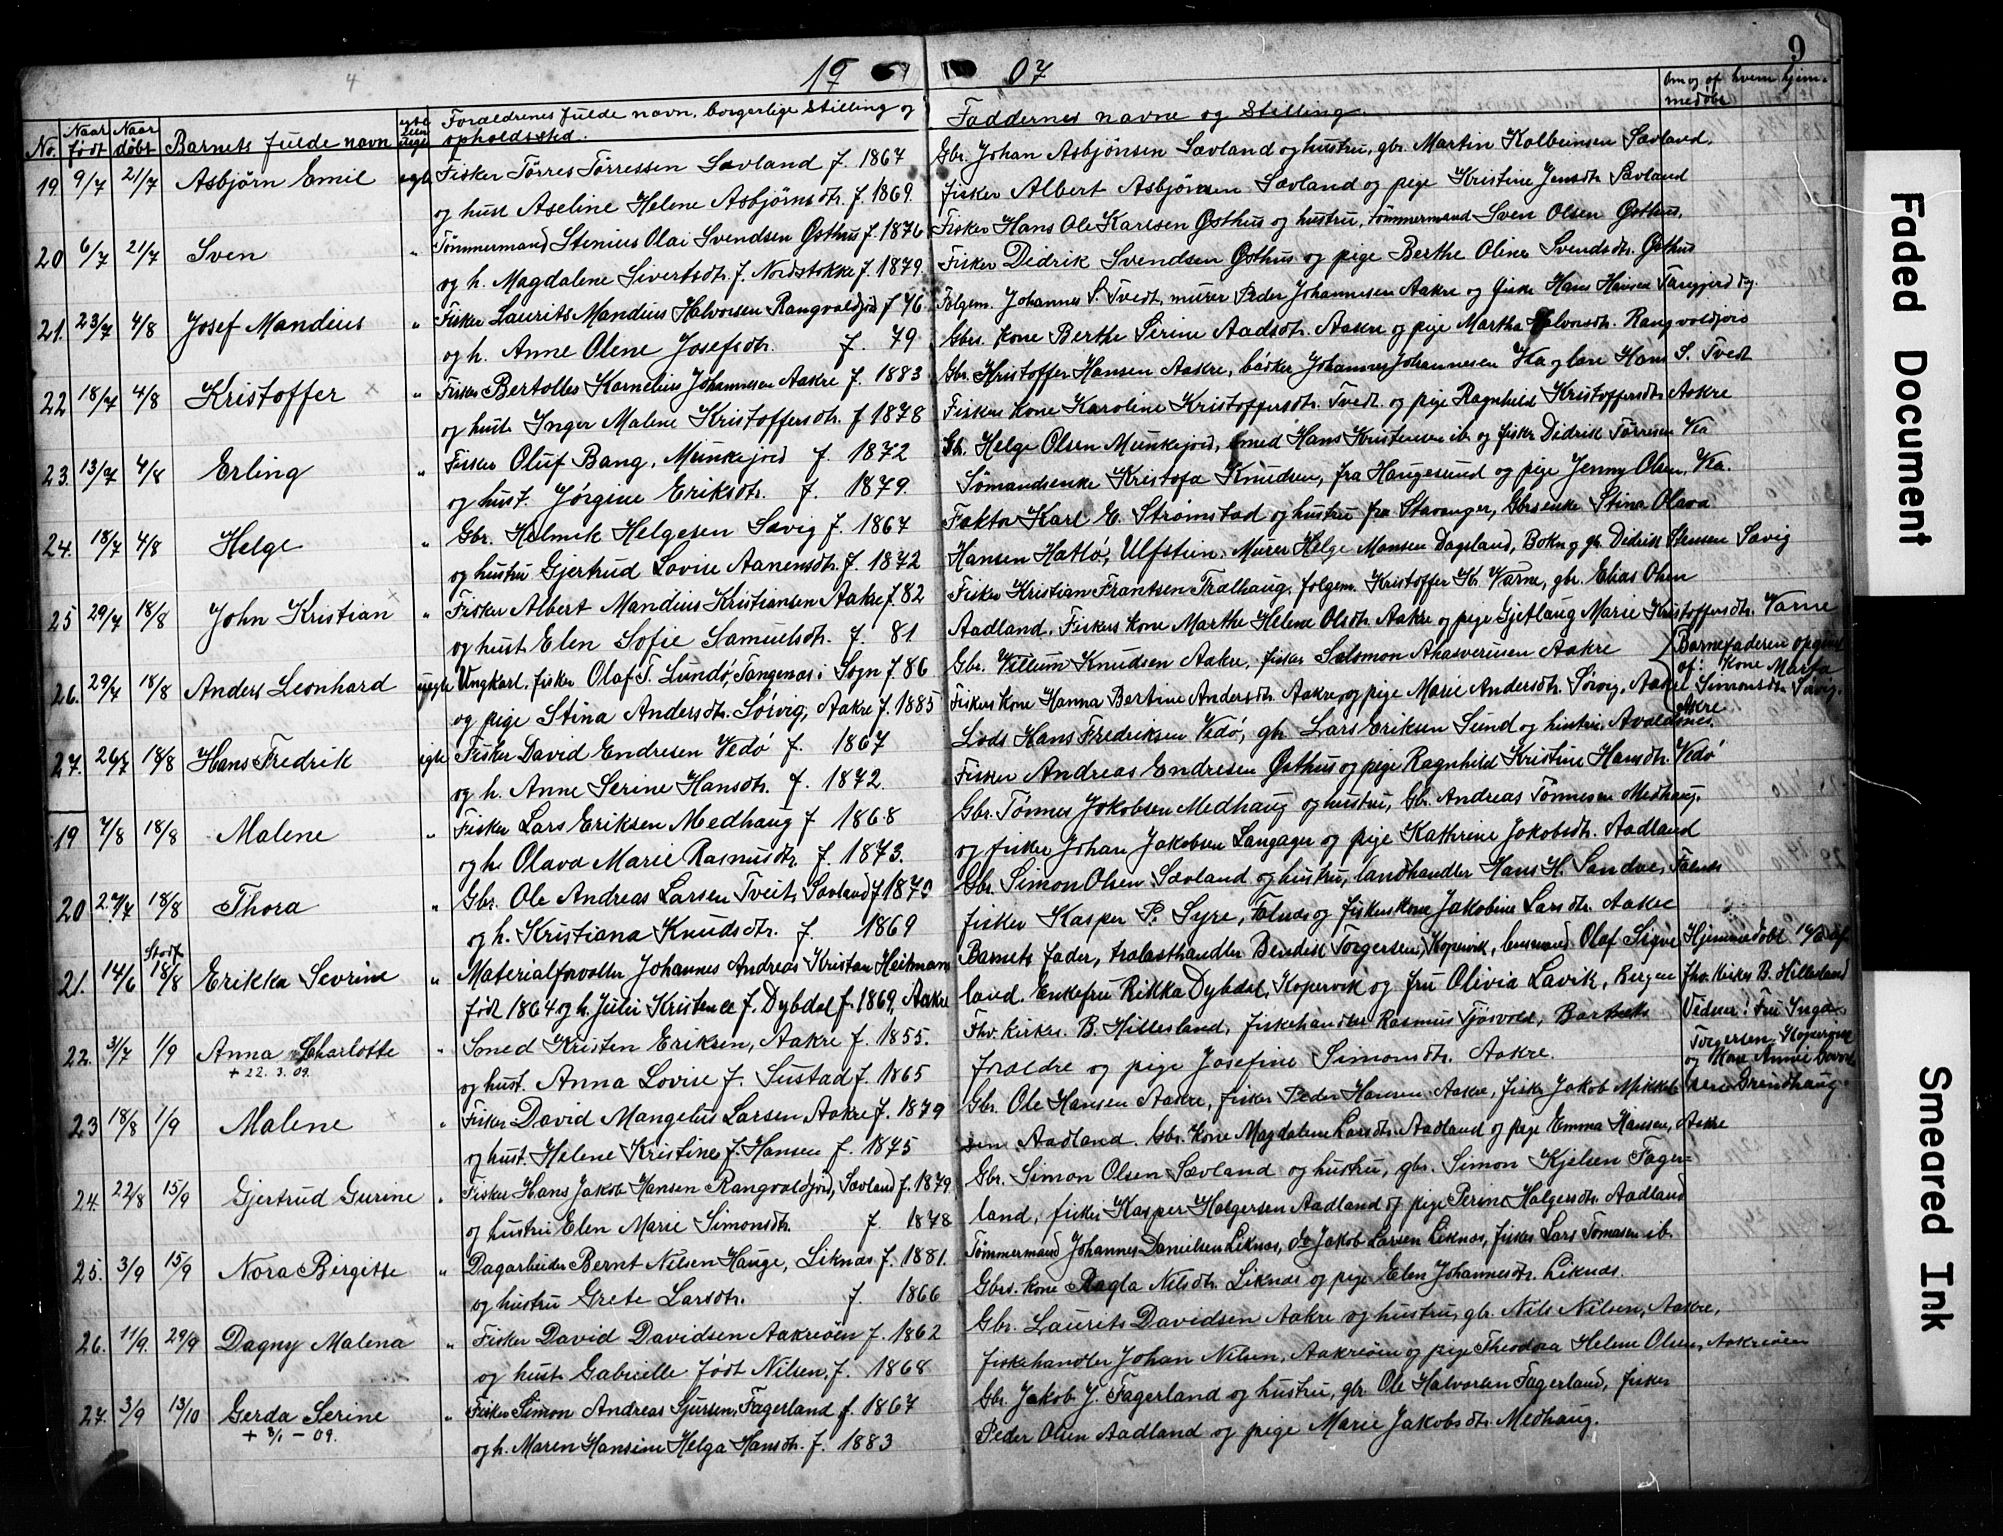 4
19 07
9
No. Naar født Naar døbt Barnets fulde navn egte eller uegte Forældrenes fulde navn, borgerlige stilling og opholdssted. Faddernes navne og stilling. Om og af hvem hjemmedøbt
19. 9/7 21/7 Asbjørn Emil egte Fisker Tørres Tørressen Sævland f. 1867 Gbr. Johan Asbjönsen Sævland og hustru, gbr. Martin Kolbeinsen Sævland,
og hust Aseline Helene Asbjörnsdtr. f. 1869. fisker Albert Asbjörnsen Sævland og pige Kristine Jensdtr. Sævland
20 6/7 21/7 Sven " Tømmermand Stenius Olai Svendsen Østhus f. 1876 Fisker Hans Ole Karlsen Østhus og hustru, tømmermand Sven Olsen Østhus,
og h. Magdalene Sivertsdtr. f. Nordstokke f. 1879. Fisker Didrik Svendsen Østhus og pige Berthe Oline Svendsdtr. Østhus
21. 23/7 4/8 Josef Mandius " Fisker Laurits Mandius Halvorsen Rangvaldjord f 76 Folgem. Johannes S. Tvedt, murer Peder Johannesen Aakre og fisker Hans Hansen
og h. Anne Olene Josefsdtr. f. 79 Gbrs. kone Berthe Serine Aadsdtr. Aakre og pige Martha Halvorsdtr. Rangvaldjord
22 18/7 4/8 Kristoffer " Fisker Bertolles Kornelius Johannesen Aakre f. 1883 Gbr. Kristoffer Hansen Aakre, bödker Johannes Johannesen Ka og lærer Hans S. Tvedt
og hust. Inger Malene Kristoffersdtr. f 1878 Fiskers kone Karoline Kristoffersdtr. Tvedt og pige Ragnhild Kristoffersdtr. Aakre
23. 13/7 4/8 Erling " Fisker Oluf Bang, Munkejord f. 1872 Gbr. Helge Olsen Munkejord, smed Hans Kristensen ib. og fisker Didrik Tørresen Ka
og hust. Jörgine Eriksdtr. f. 1879. Sømandsenke Kristofa Knudsen, fra Haugesund og pige Jenny Olsen, Ka.
24. 18/7 4/8 Helge " Gbr. Helmik Helgesen Sævig f. 1867 Faktor Karl E. Strømstad og hustru fra Stavanger, Gbrsenke Stina Olava
og hustru Gjertrud Lovise Aanensdtr. f. 1872 Hansen Hatlö, Ulfstein. Murer Helge Monsen Dagsland, Bokn og gbr. Didrik Stensen Sævig
25 29/7 18/8 John Kristian " Fisker Albert Mandius Kristiansen Aakre f. 82 Fisker Kristian Frantsen Tralhaug, folgem. Kristoffer Kr. Varne, gbr. Elias Olsen
og hust Elen Sofie Samuelsdtr. f. 81 Aadland, Fiskers kone Marthe Helene Olsdtr. Aakre og pige Gjetlaug Marie Kristoffersdtr. Varne
26. 29/7 18/8 Anders Leonhard uegte Ungkarl, fisker Olaf T. Lundö, Tangenes i Sogn f. 86 Gbr. Villum Knudsen Aakre, fisker Salomon Ahasverusen Aakre Barnefaderen opgivet
og pige Stina Andersdtr. Sörvig, Aakre f. 1885 Fiskers kone Hanna Bertine Andersdtr. Aakre og pige Marie Andersdtr. Sörvig, Aakre af: Kone Marta Simonsdtr. Sövig, Akre
27. 26/7 18/8 Hans Fredrik egte Fisker David Endresen Vedö f. 1867 Lods Hans Fredriksen Vedö, gbr. Lars Eriksen Sund og hustru Avaldsnes.
og h. Anne Serine Hansdtr. f. 1872. Fisker Andreas Endresen Østhus og pige Ragnhild Kristine Hansdtr. Vedö
19 7/8 18/8 Malene " Fisker Lars Eriksen Medhaug f 1868 Gbr. Tönnes Jokobsen Medhaug og hustru, Gbr. Andreas Tønnesen Medhaug,
og h. Olava Marie Rasmusdtr. f. 1873. og fisker Johan Jakobsen Langager og pige Kathrine Jokobsdtr. Aadland
20 27/7 18/8 Thora " Gbr. Ole Andreas Larsen Tveit, Sævland f 1870 Gbr. Simon Olsen Sævland og hustru, landhandler Hans H. Sandve, Falnes
og h. Kristiana Knudsdtr. f. 1869 fisker Kasper P. Syre, Falnes og fiskers kone Jakobine Larsdtr. Aakre
21. 14/6 Stadf. 18/8 Erikka Sevrine " Materialforvalter Johannes Andreas Kristian Heitmann Barnets fader, trælasthandler Bendik Torgersen, Kopervik, lensmand Olaf Signe Hjemmedøbt 14/8 af
født 1864 og h. Julie Kristence f. Dybdal f. 1869, Aakre land. Enkefru Rikka Dybdal, Kopervik og fru Olivia Lavik, Bergen fhv. kirkes. B. Hillesland
22. 31/7 1/9 Anna Charlotte " Smed Kristen Eriksen, Aakre f. 1855. Fhv. kirkes. B. Hillesland, fiskehandler Rasmus Tjøsvold, Barnets Vidner: Fru Inga
+ 22. 3. 09. og hust. Anna Lovise f. Sustad f. 1865 forældre og pige Josefine Simonsdtr. Aakre. Torgersen Kopervik og Kone Annie
23 18/8 1/9 Malene " Fisker David Mangelus Larsen Aakre f. 1879 Gbr. Ole Hansen Aakre, fisker Peder Hansen Aakre, fisker Jakob Mikkel- Grindhaug
og hust. Helene Kristine f. Hansen f. 1875 sen Aadland. Gbr. kone Magdalene Larsdtr. Aadland og pige Emma Hansen, Aakre
24. 22/8 15/9 Gjertrud Gurine " Fisker Hans Jakob Hansen Rangvaldjord, Sævland f. 1879 Gbr. Simon Olsen Sævland og hustru, gbr. Simon Kjelsen Fager=
og hustru Elen Marie Simonsdtr. f. 1878 land, fisker Kasper Holgersen Aadland og pige Perine Holgersdtr. Aadland
25. 3/9 15/9 Nora Birgitte " Dagarbeider Bernt Nilsen Hauge, Liknæs f. 1881. Tømmermand Johannes Danielsen Liknæs, do Jakob Larsen Liknæs, fisker Lars Tomasen ib.
og hustru Grete Larsdtr. f. 1866 Gbrs. kone Ragla Nilsdtr. Liknæs og pige Elen Johannesdtr. Liknæs.
26. 11/9. 29/9 Dagny Malena " Fisker David Davidsen Aakreöen f. 1862 Gbr. Laurits Davidsen Aakre og hustru, gbr. Nils Nilsen, Aakre,
og hust. Gabrielle født Nilsen, f. 1868 fiskehandler Johan Nilsen, Aakreöen og pige Theodora Helene Olsen, Aakreöen
27. 3/9 13/10 Gerda Serine " Fisker Simon Andreas Sjursen, Fagerland f. 1867 Gbr. Jakob J. Fagerland og hustru, gbr. Ole Halvorsen Fagerland, fisker
+ 3/1 - 09. og h. Maren Hansine Helga Hansdtr. f. 1883 Peder Olsen Aadland og pige Marie Jakobsdtr. Medhaug.
Faded Document
Smeared Ink